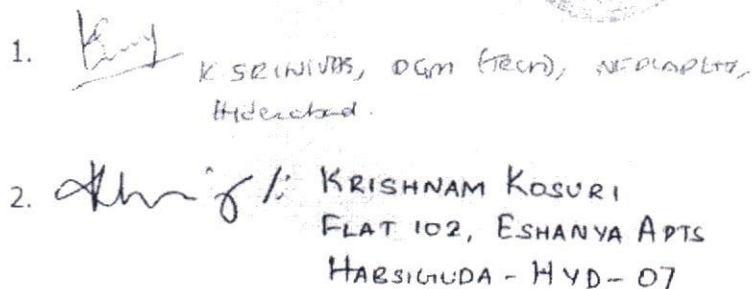 1. K SRINIVAS, DGM (TECH), NEDCAP LTD,
Hyderabad.
2. KRISHNAM KOSURI
FLAT 102, ESHANYA APTS
HABSIGUDA - HYD - 07